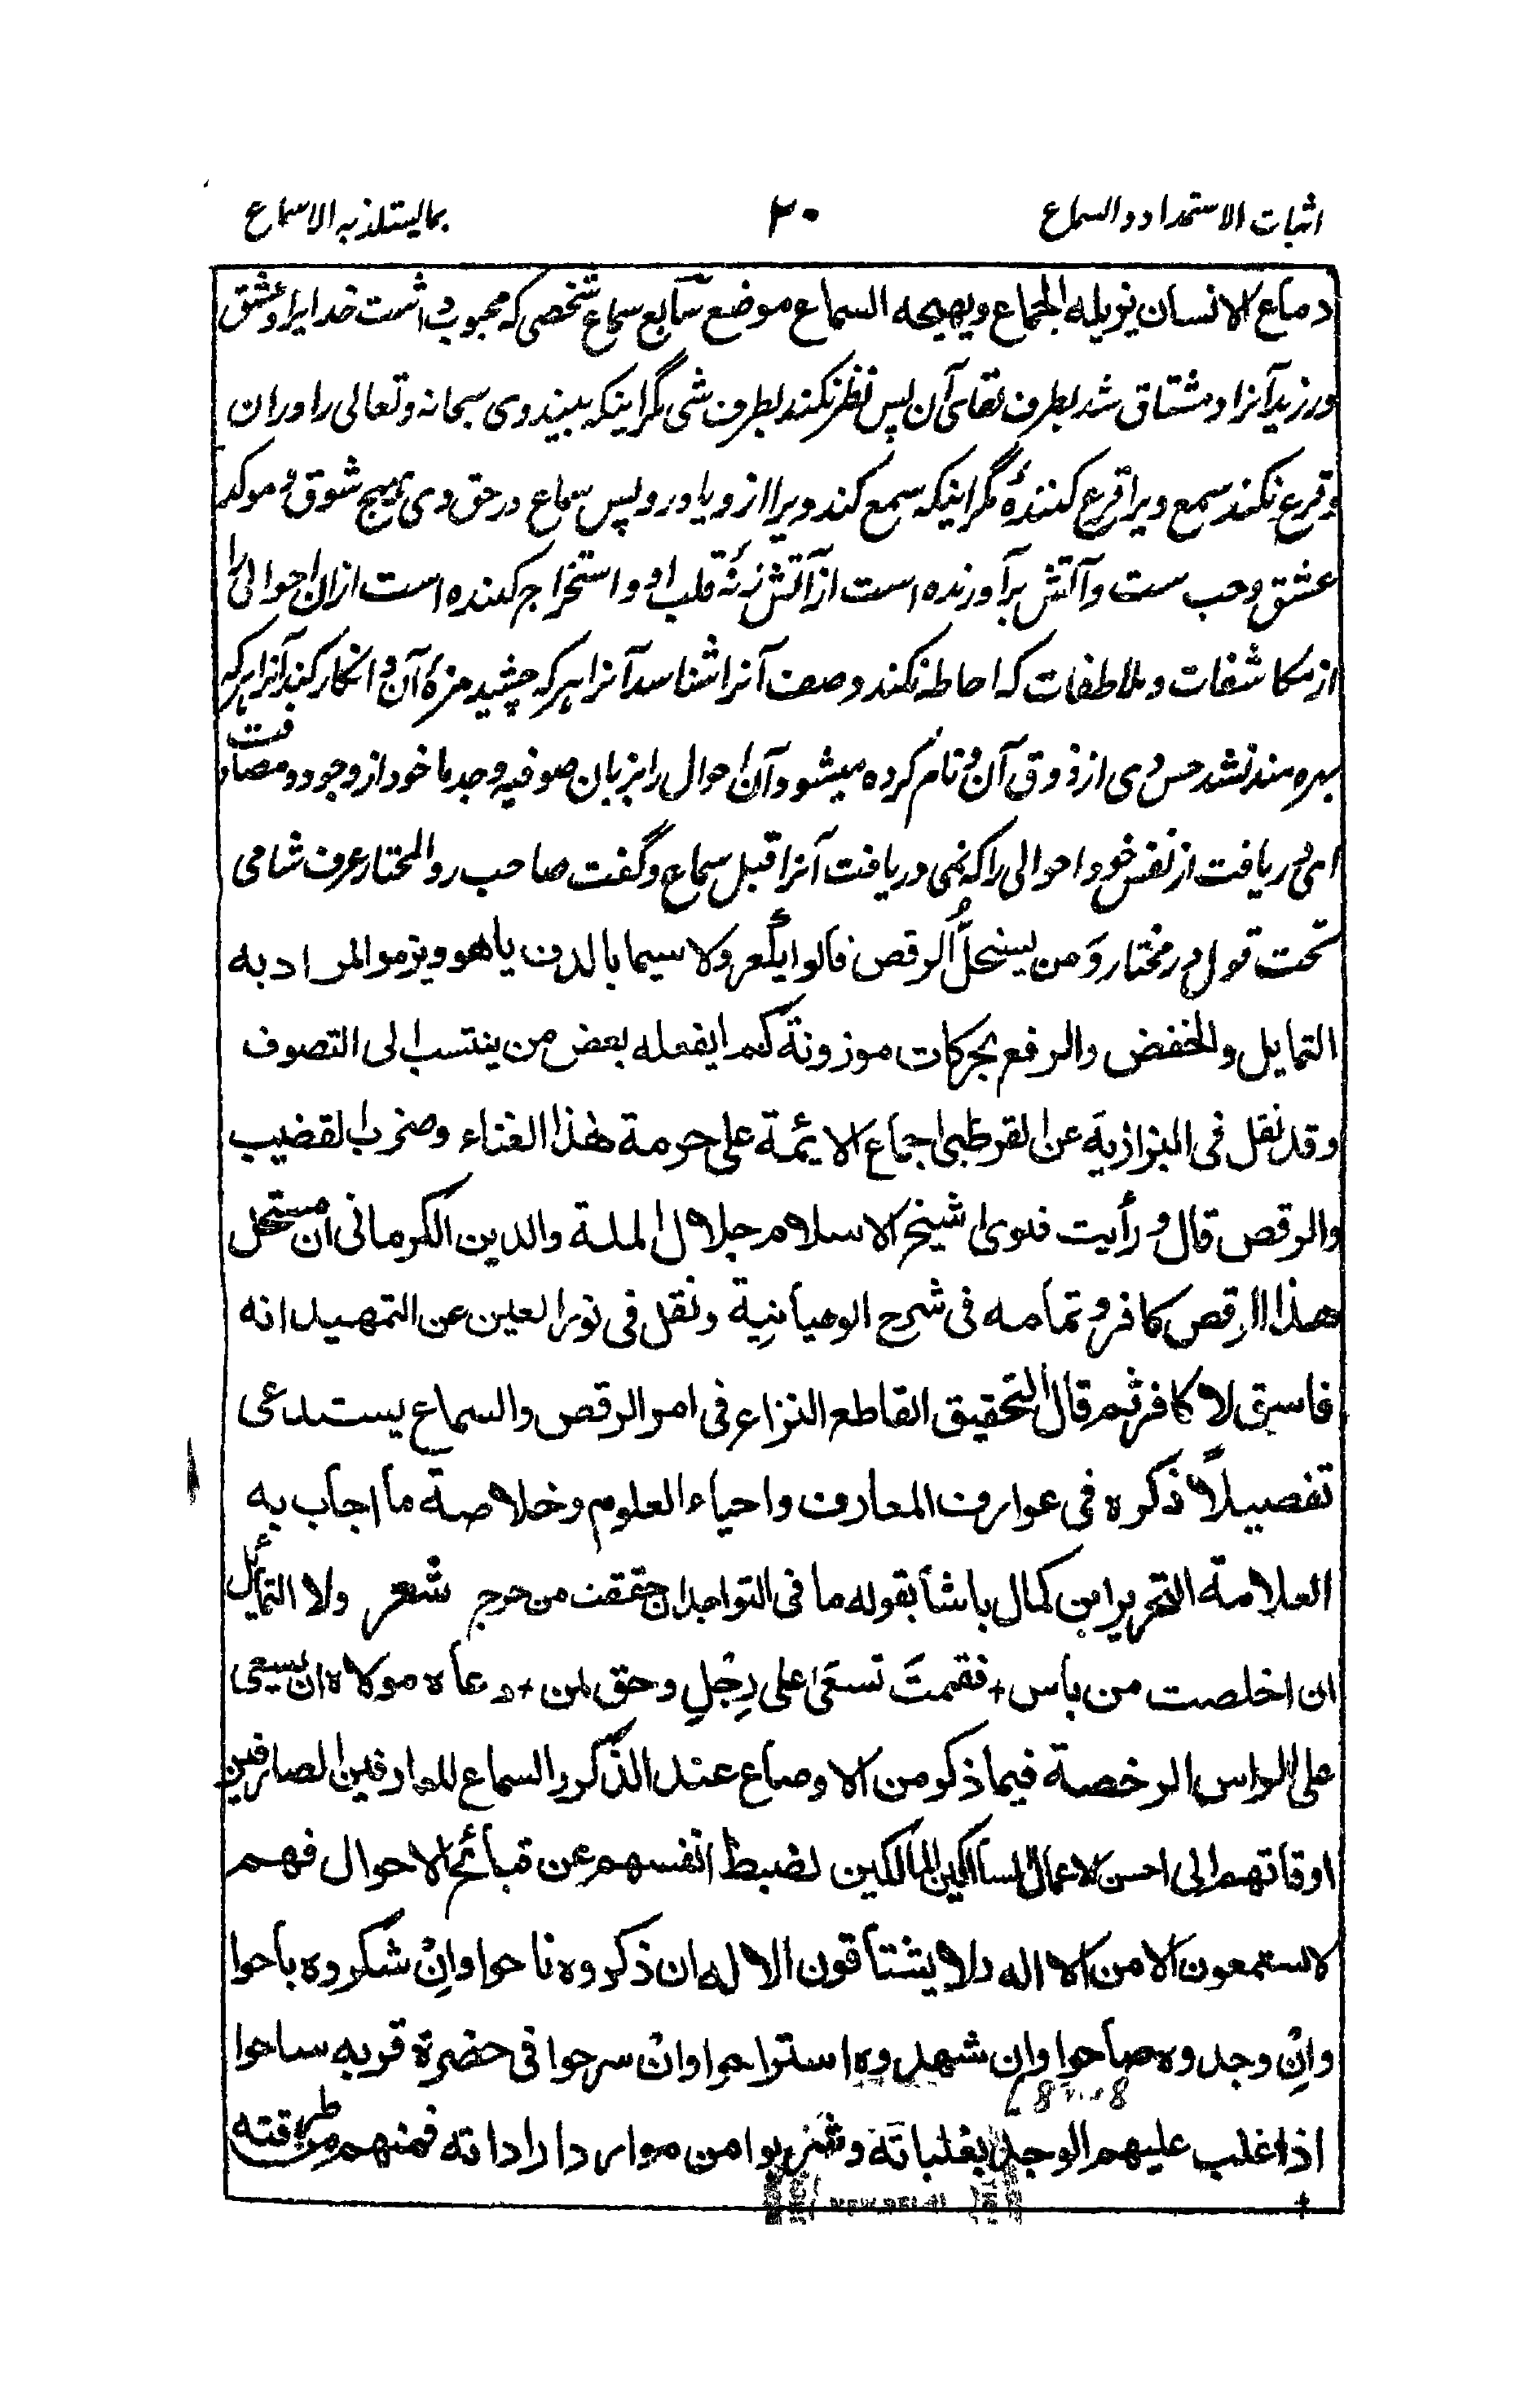 اثبات الاستمداد والسماع ٢٠ بما یستلذ به الاسماع
دماغ الانسان یزیله الجماع ویهیجه السماع موضع سابع سماع شخصی که محبوب داشت خدایرا و عشق
ورزید آنرا و مشتاق شد بطرف لقای آن پس نظر نکند بطرف شی مگر اینکه ببیند وی سبحانه و تعالی را وران
و قرع نکند سمع ویرا قرع کنندهٔ مگر اینکه سمع کند ویرا ازو یا درو پس سماع در حق وی مهیج شوق و موکد
عشق و حب ست و آتش برآورنده است از آتش زنهٔ قلب او و استخراج کننده است ازان احوالی را
از مکاشفات و ملاطفات که احاطه نکند وصف آنرا شناسد آنرا هر که چشید مزهٔ آن و انکار کند آنرا هر که
بهره مند نشد حس وی از ذوق آن و نام کرده میشود آن احوال را بزبان صوفیه وجد ماخوذ از وجود و مصادفت
ای دریافت از نفس خود احوالی را که نمی دریافت آنرا قبل سماع و گفت صاحب رد المختار عرف شامی
تحت قول در مختار وَمن یستحلُّ الرقص قالوا بکُفر ولا سیما بالدف یلهو ویزمر المراد به
التمایل والخفض والرفع بحرکات موزونة کما یفعله بعض من ینتسب الی التصوف
وقد نقل فی البزازیة عن القرطبی اجماع الائمة علی حرمة هذا الغناء وضرب القضیب
والرقص قال ورأیت فتوی شیخ الاسلام جلال الملة والدین الکرمانی ان مستحل
هذا الرقص کافر وتمامه فی شرح الوهبانیة ونقل فی نور العین عن التمهید انه
فاسق لا کافر ثم قال التحقیق القاطع النزاع فی امر الرقص والسماع یستدعی
تفصیلاً ذکره فی عوارف المعارف واحیاء العلوم وخلاصة ما اجاب به
العلامة النحریر ابن کمال باشا بقوله ما فی التواجد ان حققت من حرج شعر ولا التمائل
ان اخلصت من باس + فقمتَ تسعی علی رِجْلٍ وحق لمن + دعاه مولاه ان یسعی
علی الراس الرخصة فیما ذکر من الاوضاع عند الذکر والسماع للعارفین الصارفین
اوقاتهم الی احسن الاعمال السالکین المالکین لضبط انفسهم عن قبائح الاحوال فهم
لا یستمعون الا من الاله ولا یشتاقون الا له ان ذکروه ناحوا وانْ شکروه باحوا
وانْ وجدوه صاحوا وان شهدوه استراحوا وانْ سرحوا فی حضرة قربه ساحوا
اذا غلب علیهم الوجد بغلباته وشربوا من موارد اراداته فمنهم من طرقته